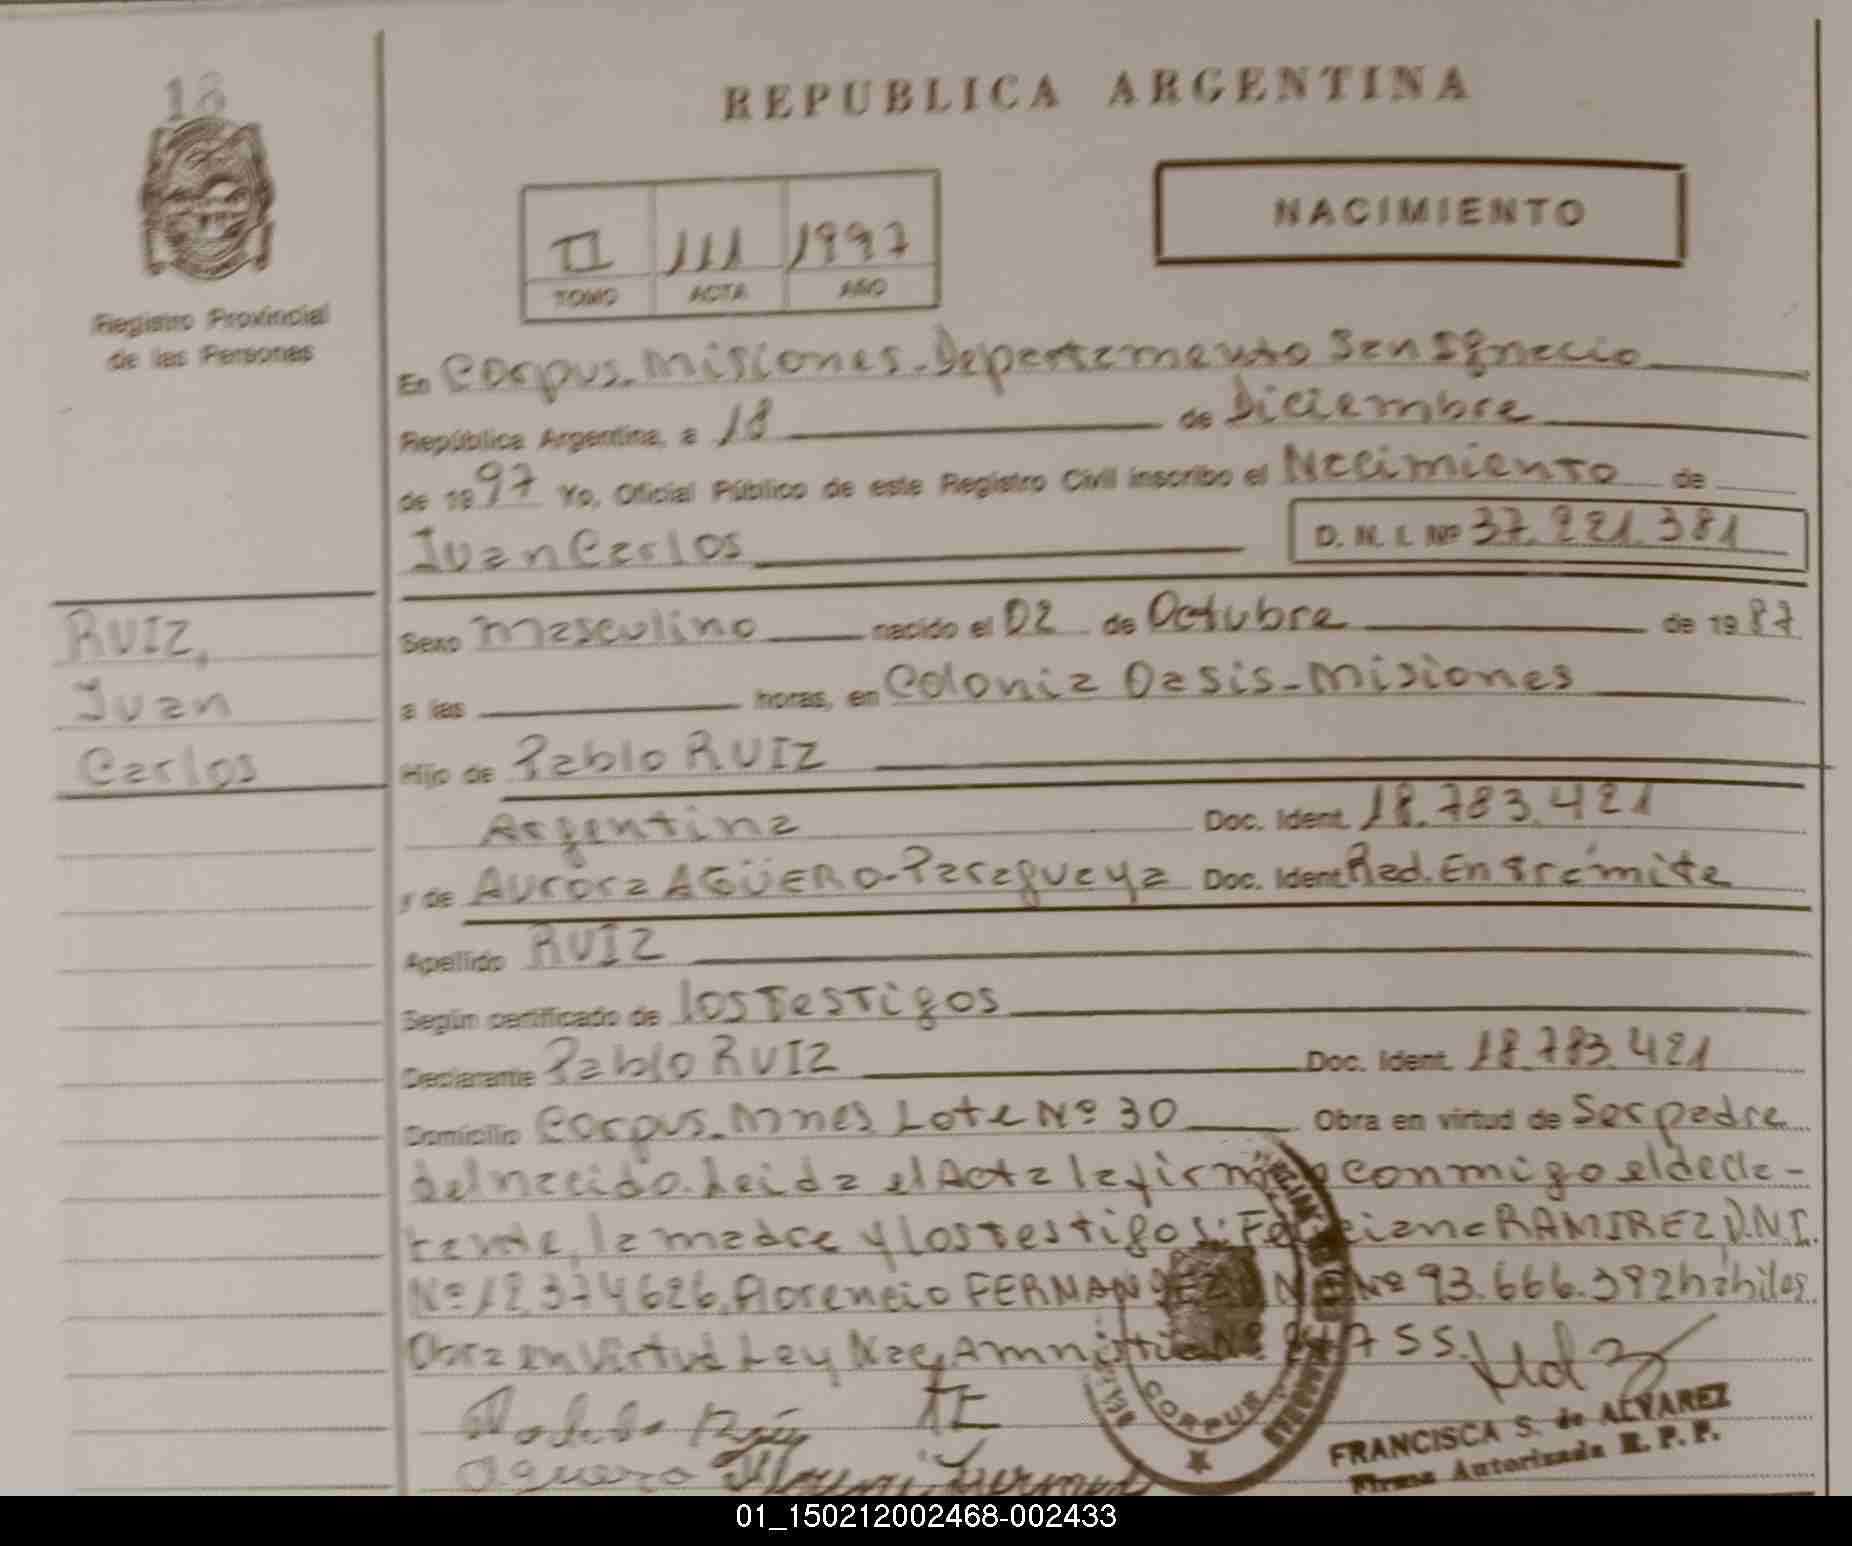 18
REPUBLICA ARGENTINA
NACIMIENTO
II 111 1997
TOMO ACTA AÑO
Registro Provincial
de las Personas
En Corpus. Misiones. Departamento San Ignacio
República Argentina, a 18 de Diciembre
de 1997 Yo, Oficial Público de este Registro Civil inscribo el Nacimiento de
Juan Carlos D. N. I. Nº 37.221.381
RUIZ,
Juan
Carlos
Sexo Masculino nacido el 02 de Octubre de 1987
a las horas, en Colonia Oasis-Misiones
Hijo de Pablo RUIZ
Argentina Doc. Ident. 18.783.421
y de Aurora AGÜERO-Paraguaya Doc. Ident Rad. En trámite
Apellido RUIZ
Según certificado de los Testigos
Declarante Pablo RUIZ Doc. Ident. 18.783.421
Domicilio Corpus. Mnes Lote Nº 30 Obra en virtud de Ser padre
del nacido. Leida el Acta la firman conmigo el decla-
rante, la madre y los testigos: RAMIREZ D.N.I.
Nº 12.374626, Florencio FERNANDEZ D N I Nº 93.666.392 hábiles
Obra en virtud Ley Nac. Amnistia Nº
CORPUS
Aguero
FRANCISCA S. de ALVAREZ
Firma Autorizada R. P. P.
01_150212002468-002433